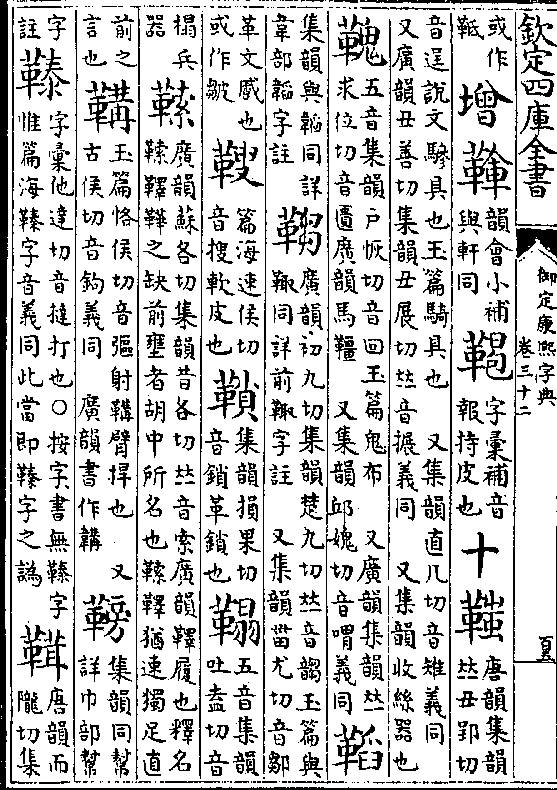 欽定四庫全書
御定康熙字典
卷三十二
或作
增 韻會小補
與軒同 字彙補音
報持皮也 十 唐韻集韻
𠀤丑郢切
音逞說文驂具也玉篇騎具也 又集韻直几切音雉義同
又廣韻丑善切集韻丑展切𠀤音搌義同 又集韻收絲器也
五音集韻戶恢切音回玉篇鬼布 又廣韻集韻𠀤
求位切音匱廣韻馬韁 又集韻邱媿切音喟義同 鞱
集韻與韜同詳
韋部韜字註 廣韻初九切集韻楚九切𠀤音玉篇與
同詳前字註 又集韻甾尤切音鄒
革文蹙也
或作皺 篇海速侯切
音搜軟皮也 集韻損果切
音鎖革鎖也 五音集韻
吐盍切音
榻兵
器 廣韻蘇各切集韻昔各切𠀤音索廣韻鞸履也釋名
鞸鞾之缺前壅者胡中所名也鞸猶速獨足直
前之
言也 鞲 玉篇恪侯切音彄射鞲臂捍也 又
古侯切音鉤義同 廣韻書作韝 集韻同幫
詳巾部幫
字
註 字彙他達切音撻打也○按字書無字
惟篇海字音義同此當即字之譌 唐韻而
隴切集